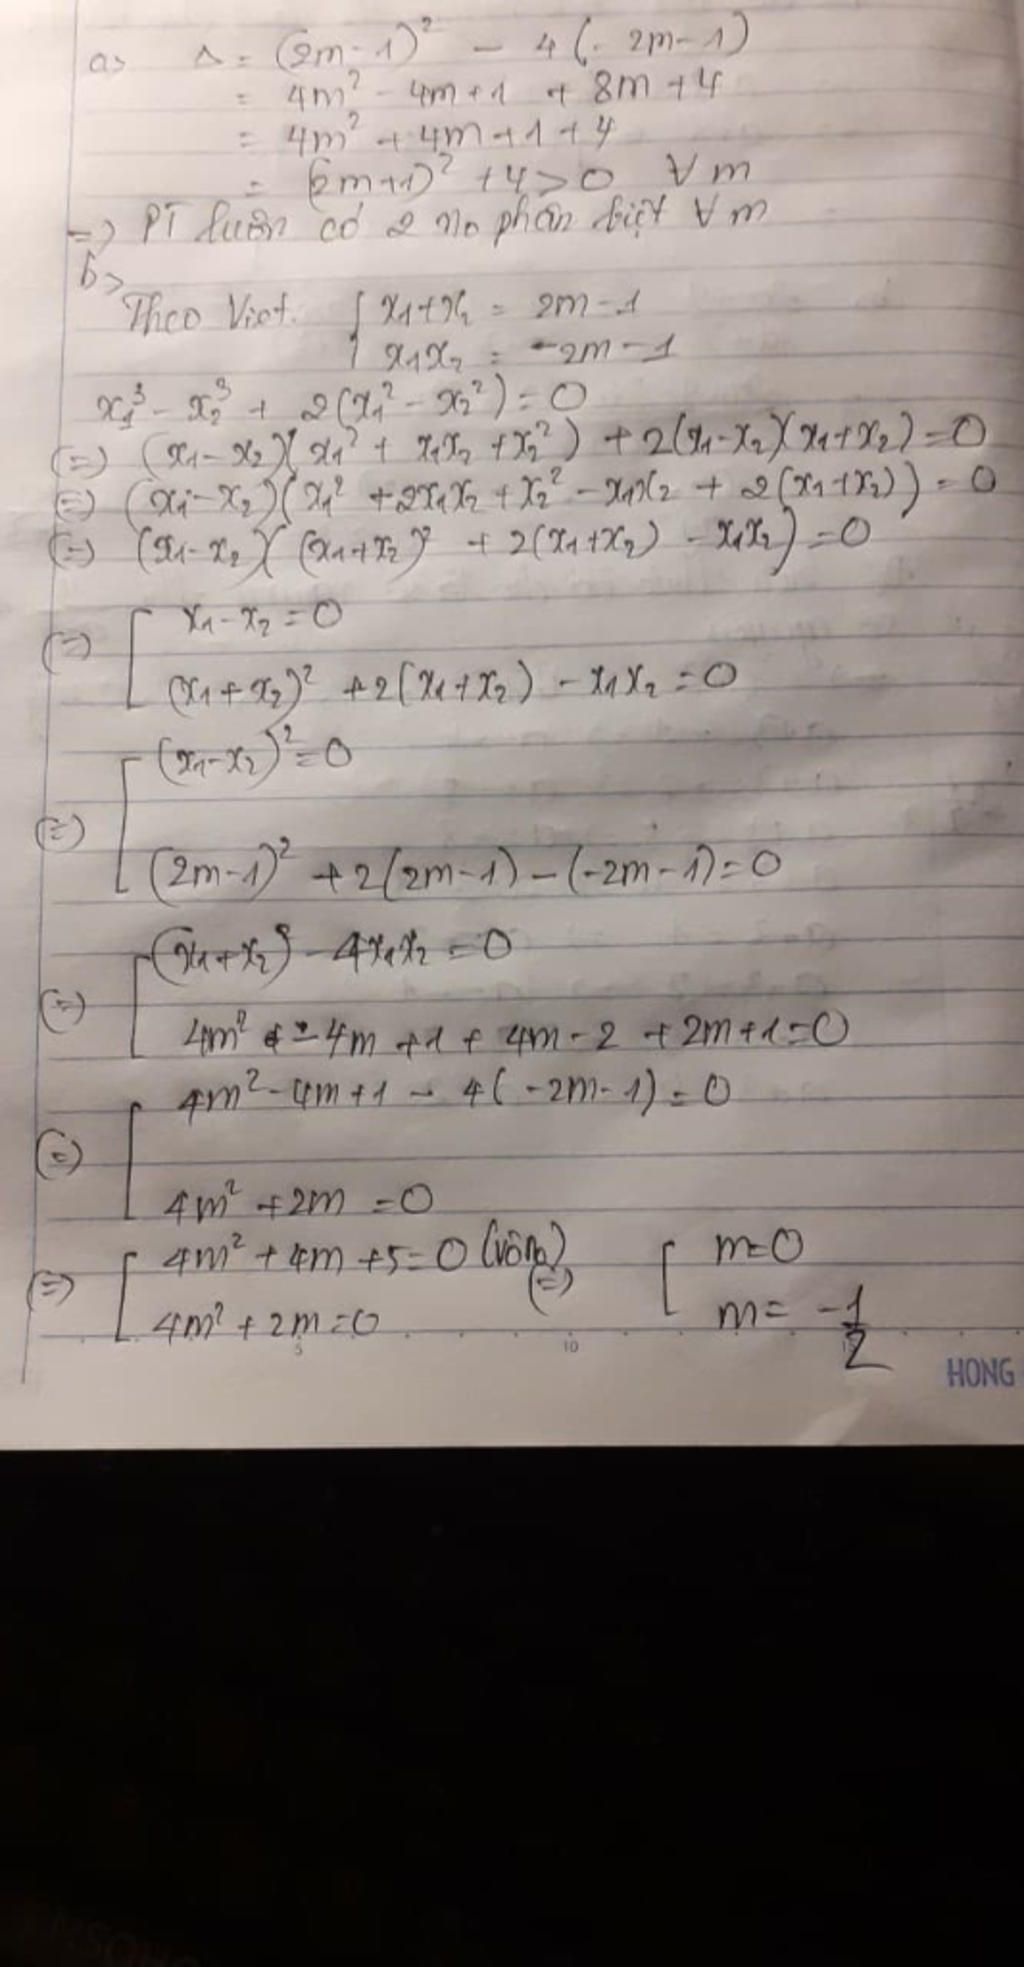 a> Δ = (2m-1)² - 4(-2m-1)
= 4m² - 4m+1 + 8m+4
= 4m² + 4m+1+4
= (2m+1)² +4>0 ∀m
=> PT luôn có 2 no phân biệt ∀m
b>
Theo Viet. { x₁+x₂ = 2m-1
x₁x₂ = -2m-1
x₁³ - x₂³ + 2(x₁² - x₂²) = 0
(=) (x₁-x₂)(x₁² + x₁x₂ + x₂²) + 2(x₁-x₂)(x₁+x₂)=0
(=) (x₁-x₂)(x₁² +2x₁x₂ + x₂² - x₁x₂ + 2(x₁+x₂)) = 0
(=) (x₁-x₂)( (x₁+x₂)² + 2(x₁+x₂) - x₁x₂)=0
(=) [ x₁-x₂=0
(x₁+x₂)² +2(x₁+x₂) - x₁x₂=0
(=) [ (x₁-x₂)²=0
(2m-1)² +2(2m-1)-(-2m-1)=0
(=) [ (x₁+x₂)² - 4x₁x₂ = 0
4m² - 4m +1 + 4m-2 +2m+1=0
(=) [ 4m²-4m+1 - 4(-2m-1)=0
4m² +2m =0
(=) [ 4m² +4m +5=0 (vô no) (=) [ m=0
4m² +2m=0 m= -1/2
5 10 15
HONG